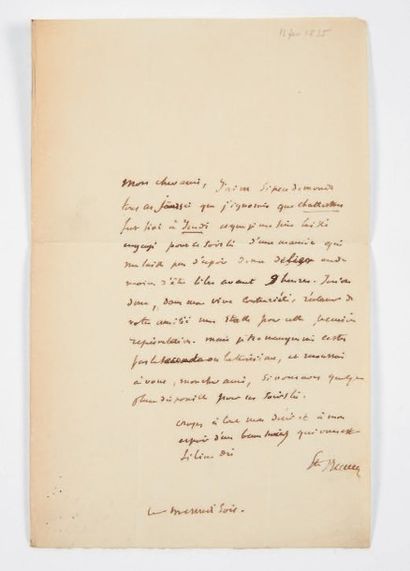 11 fev 1835
Mon cher ami, J'ai vu si peu de monde
tous ces jours-ci que j'ignorais que Chatterton
fut fixé à Jeudi et que je me suis laissé
engagé pour ce soir là d'une manière qui
me laisse peu d'espoir de me délier ou du
moins d'être libre avant 9 heures. Je
donc, dans ma vive contrariété, de
votre amitié une Stalle pour cette première
représentation. mais je ne manquerai certes
pas la seconde ou la troisième, et
à vous, mon cher ami, si vous avez quelque
place disponible pour ces soirs là.
croyez à tout mon désir et à mon
espoir d'un beau succès qui vous est
si bien dû
Ste Beuve
Ce Mercredi Soir.